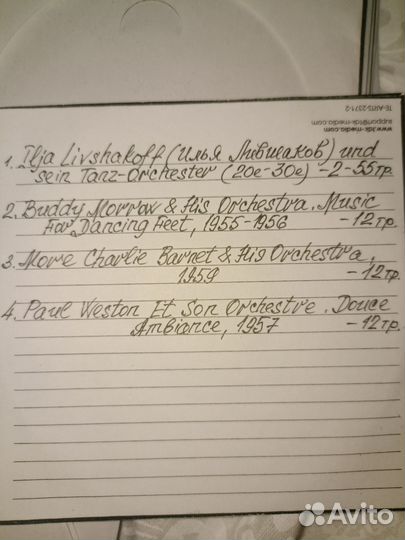 TE-ARTS-2371-2
support@tdk-media.com
www.tdk-media.com
1. Ilja Livshakoff (Илья Лившаков) und
sein Tanz-Orchester (20е-30е) -2-55тр.
2. Buddy Morrow & His Orchestra. Music
For Dancing Feet, 1955-1956 -12тр.
3. More Charlie Barnet & His Orchestra,
1959 -12тр.
4. Paul Weston Et Son Orchestre. Douce
Ambiance, 1957 -12тр.
Avito